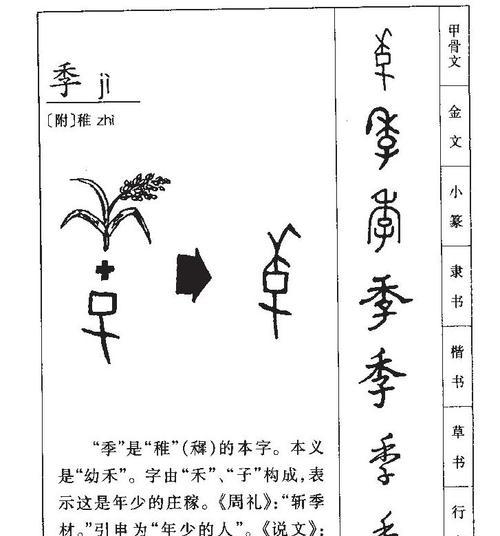 季 jì
〔附〕稚 zhì
“季”是“稚”(稺)的本字。本义
是“幼禾”。字由“禾”、“子”构成,表
示这是年少的庄稼。《周礼》:“斩季
材。”引申为“年少的人”。《说文》:
甲骨文
金文
小篆
隶书
楷书
草书
行
季
季
季